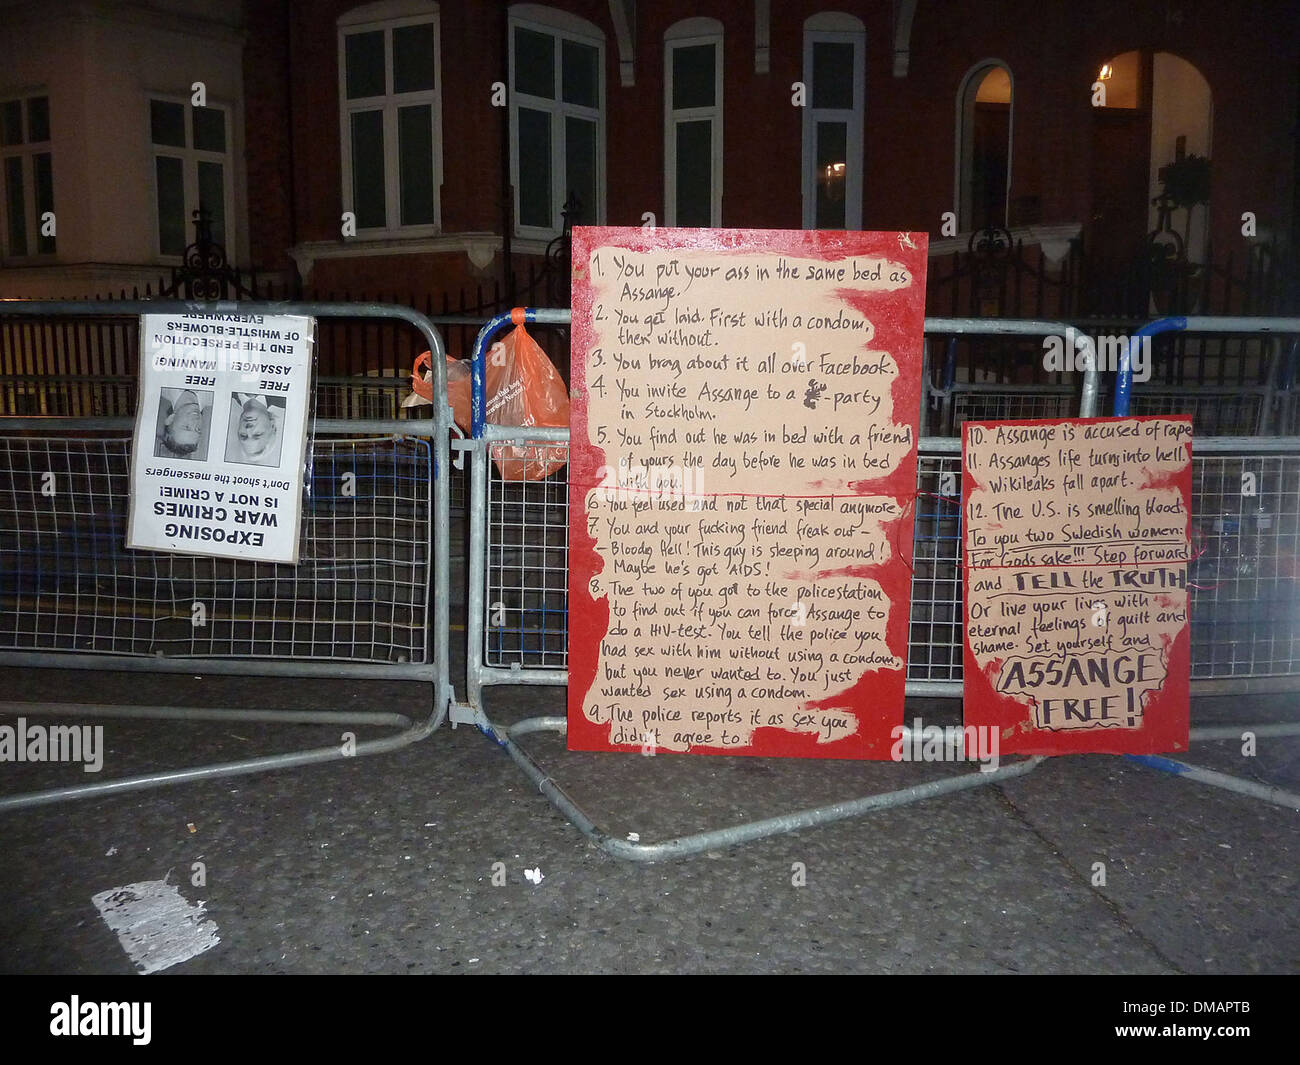 EXPOSING
WAR CRIMES
IS NOT A CRIME!
Don't shoot the messengers
FREE
ASSANGE!
FREE
MANNING!
END THE PERSECUTION
OF WHISTLE-BLOWERS
EVERYWHERE
1. You put your ass in the same bed as
Assange.
2. You get laid. First with a condom,
then without.
3. You brag about it all over Facebook.
4. You invite Assange to a -party
in Stockholm.
5. You find out he was in bed with a friend
of yours the day before he was in bed
with you.
6. You feel used and not that special anymore
7. You and your fucking friend freak out-
- Bloody Hell! This guy is sleeping around!
Maybe he's got AIDS!
8. The two of you got to the policestation
to find out if you can force Assange to
do a HIV-test. You tell the police you
had sex with him without using a condom,
but you never wanted to. You just
wanted sex using a condom.
9. The police reports it as sex you
didn't agree to.
10. Assange is accused of rape
11. Assanges life turns into hell.
Wikileaks fall apart.
12. The U.S. is smelling blood.
To you two Swedish women:
For Gods sake!!! Step forward
and TELL the TRUTH
Or live your lives with
eternal feelings of guilt and
shame. Set yourself and
ASSANGE
FREE!
14
alamy
Image ID: DMAPTB
www.alamy.com